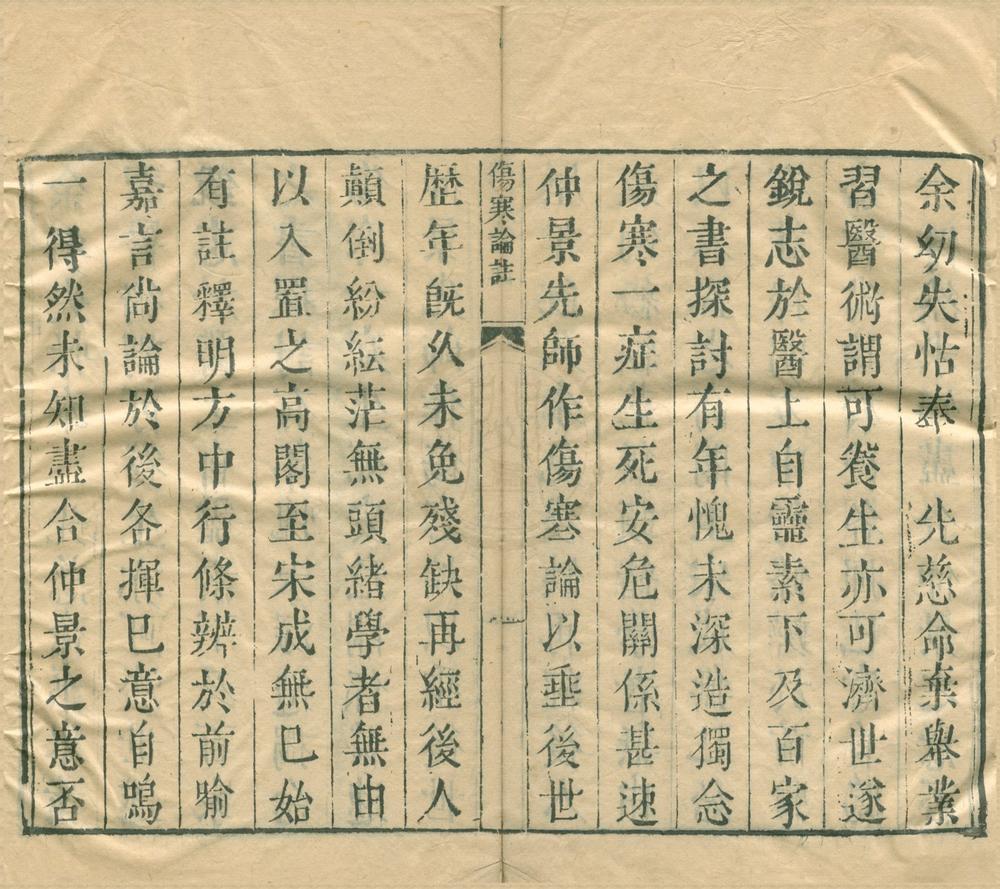 余幼失怙奉 先慈命棄舉業
習醫術謂可養生亦可濟世遂
銳志於醫上自靈素下及百家
之書探討有年愧未深造獨念
傷寒一症生死安危關係甚速
仲景先師作傷寒論以垂後世
傷寒論註
一
歴年旣久未免殘缺再經後人
顛倒紛紜茫無頭緒學者無由
以入置之高閣至宋成無巳始
有註釋明方中行條辨於前喻
嘉言尙論於後各揮巳意自鳴
一得然未知盡合仲景之意否